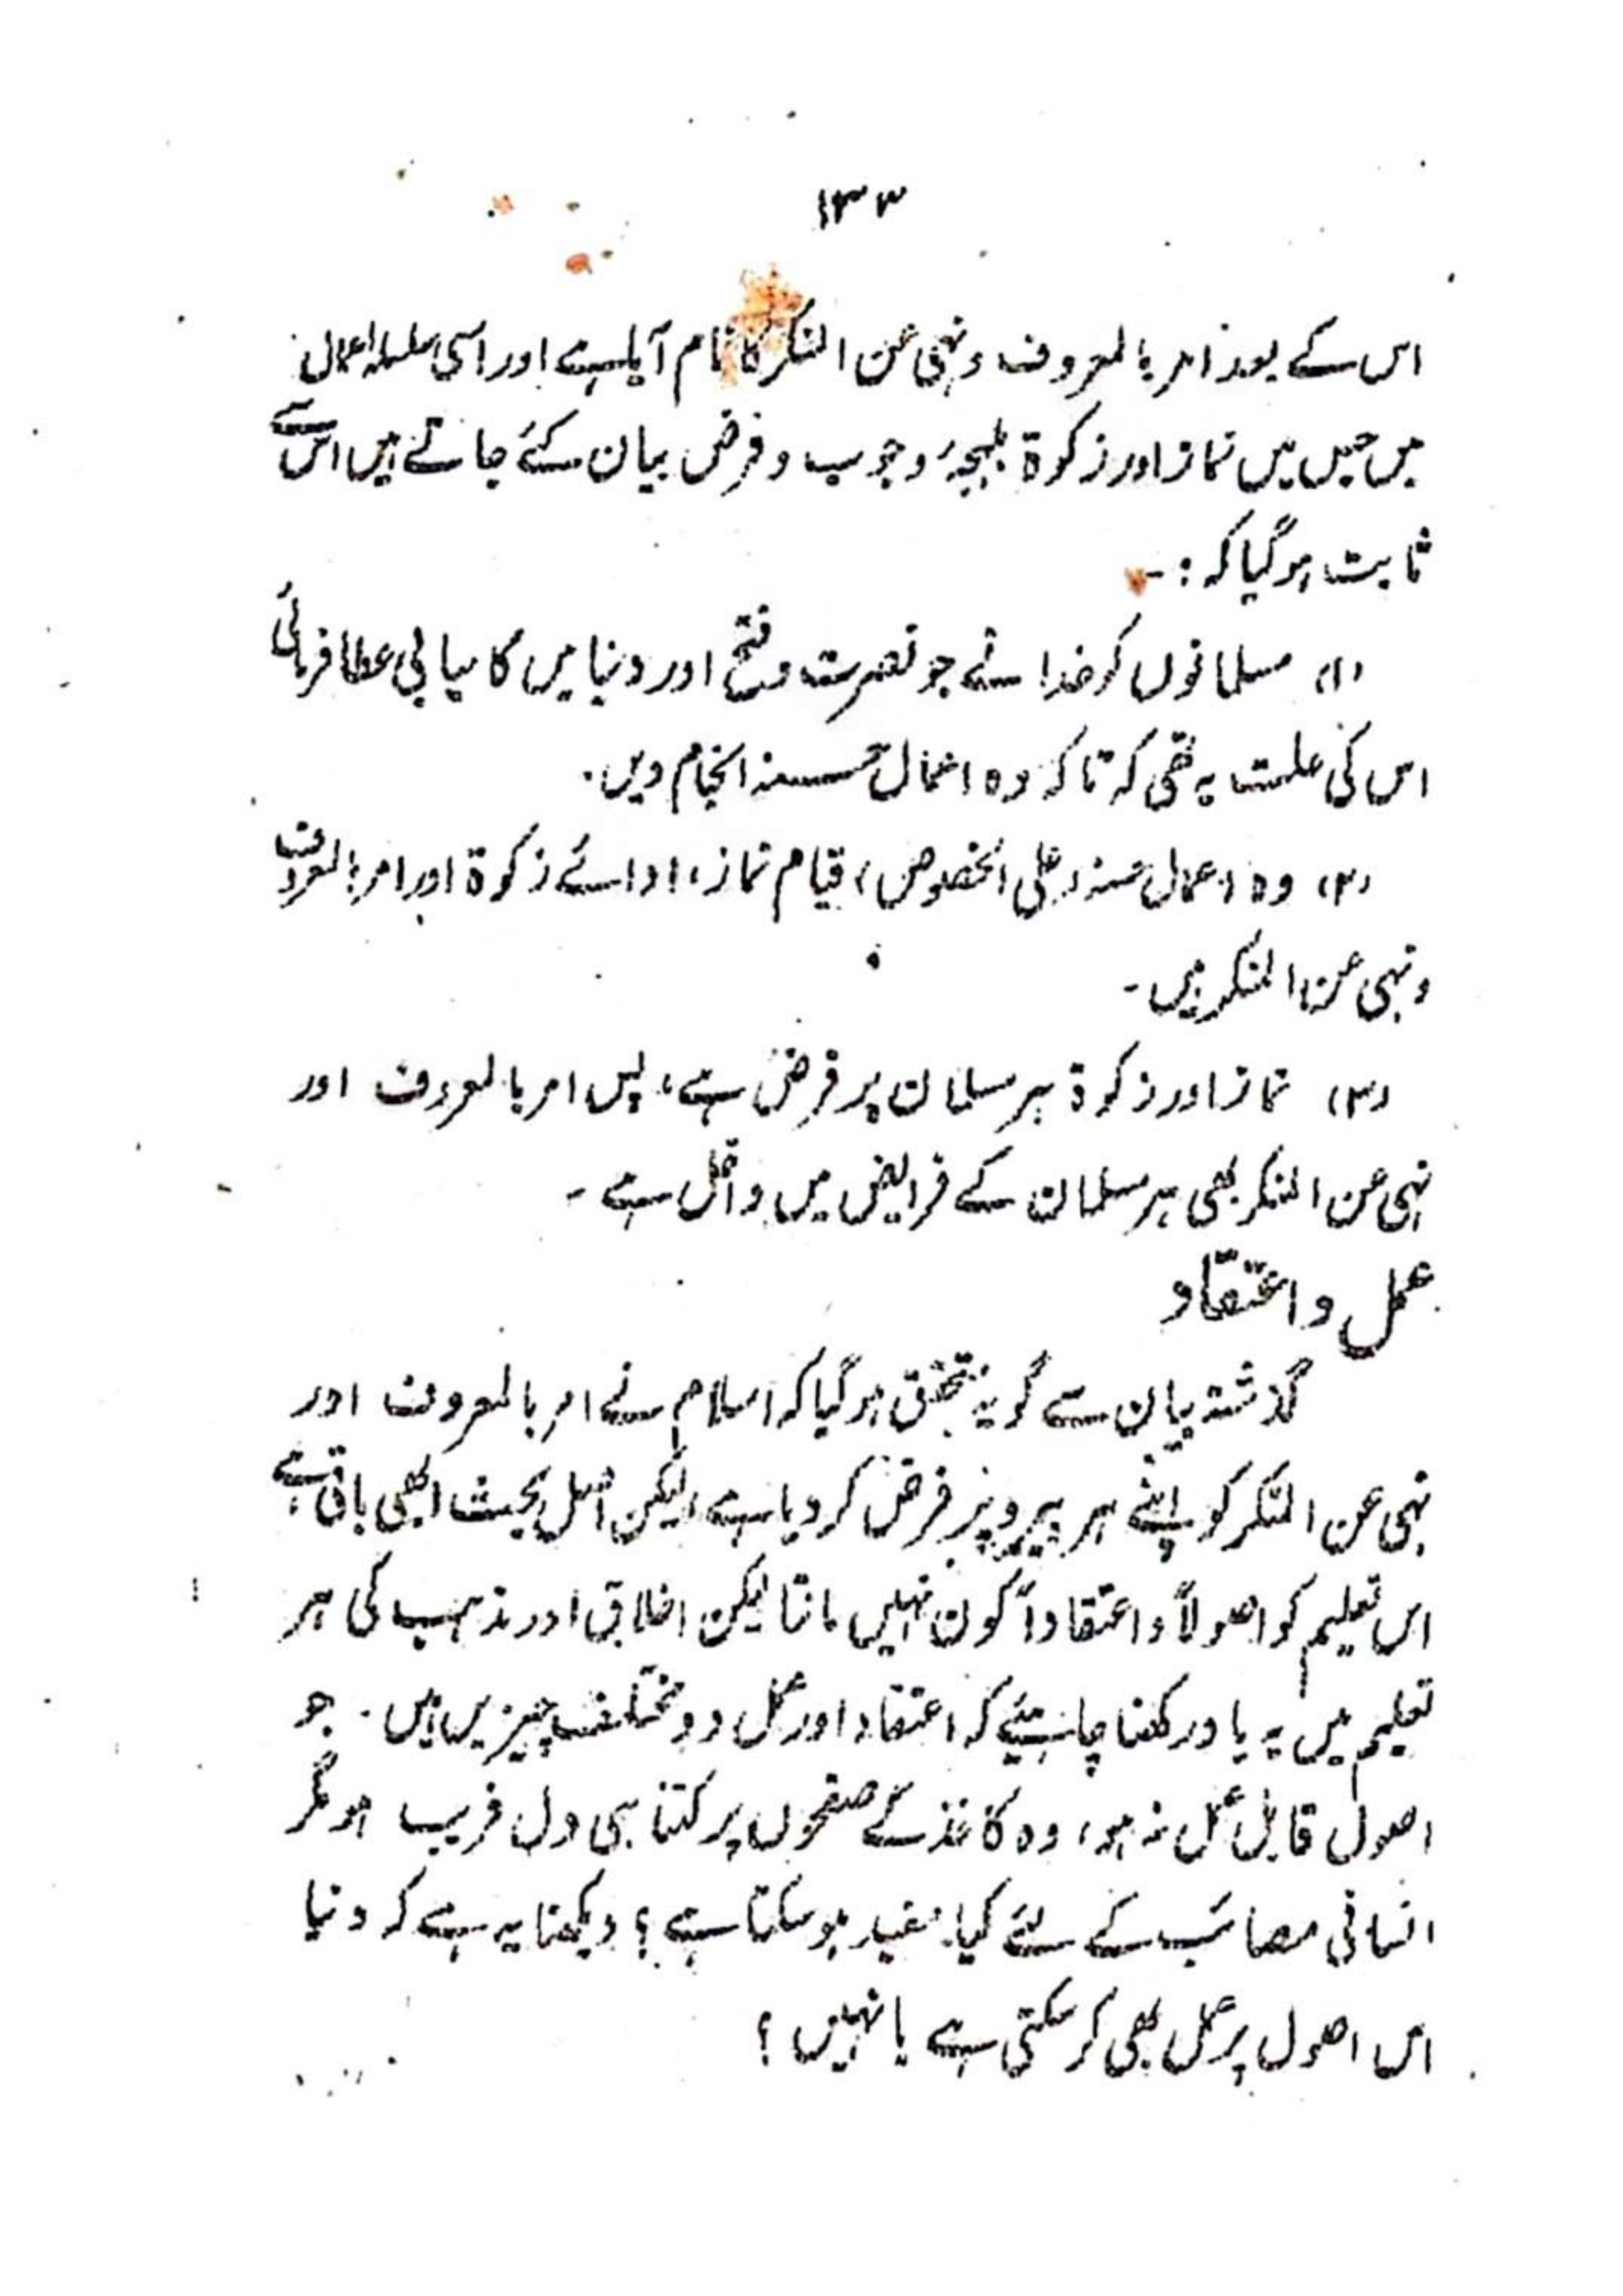 ۱۳۳
اس کے بعد امر بالمعروف و نہی عن المنکر کا نام آیا ہے اور اسی سلسلہ اعمال
میں جس میں نماز اور زکوۃ بلہجۂ وجوب و فرض بیان کئے جاتے ہیں اس سے
ثابت ہوگیا کہ :-
(۱) مسلمانوں کو خدا نے جو نصرت و فتح اور دنیا میں کامیابی عطا فرمائی
اس کی علت یہ تھی کہ تاکہ وہ اعمال حسنہ انجام دیں.
(۲) وہ اعمال حسنہ (علی الخصوص) قیام نماز، ادائے زکوۃ اور امر بالمعروف
و نہی عن المنکر ہیں -
(۳) نماز اور زکوۃ ہر مسلمان پر فرض ہے، پس امر بالمعروف اور
نہی عن المنکر بھی ہر مسلمان کے فرایض میں داخل ہے -
عمل و اعتقاد
گذشتہ بیان سے گو یہ متحقق ہوگیا کہ اسلام نے امر بالمعروف اور
نہی عن المنکر کو اپنے ہر پیرو پر فرض کر دیا ہے، لیکن اصل بحث ابھی باقی ہے،
اس تعلیم کو اصولاً و اعتقاداً کون نہیں مانتا لیکن اخلاق اور مذہب کی ہر
تعلیم میں یہ یاد رکھنا چاہیئے کہ اعتقاد اور عمل دو مختلف چیزیں ہیں. جو
اصول قابل عمل نہ ہو، وہ کاغذ کے صفحوں پر کتنا ہی دل فریب ہو مگر
انسانی مصائب کے لئے کیا مفید ہو سکتا ہے؟ دیکھنا یہ ہے کہ دنیا
اس اصول پر عمل بھی کر سکتی ہے یا نہیں؟